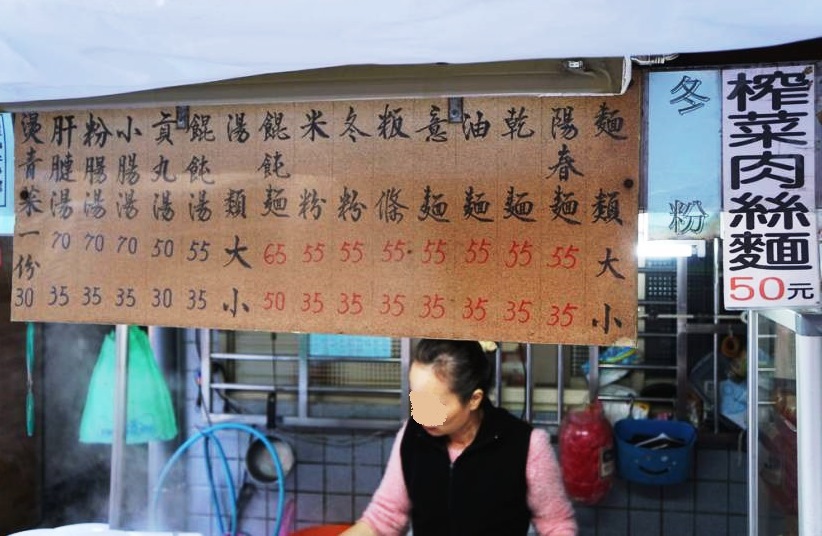 榨菜肉絲麵
50元
冬粉
麵類 大 小
陽春麵 55 35
乾麵 55 35
油麵 55 35
意麵 55 35
粄條 55 35
冬粉 55 35
米粉 55 35
餛飩麵 65 50
湯類 大 小
餛飩湯 55 35
貢丸湯 50 30
小腸湯 70 35
粉腸湯 70 35
肝腱湯 70 35
燙青菜一份 30